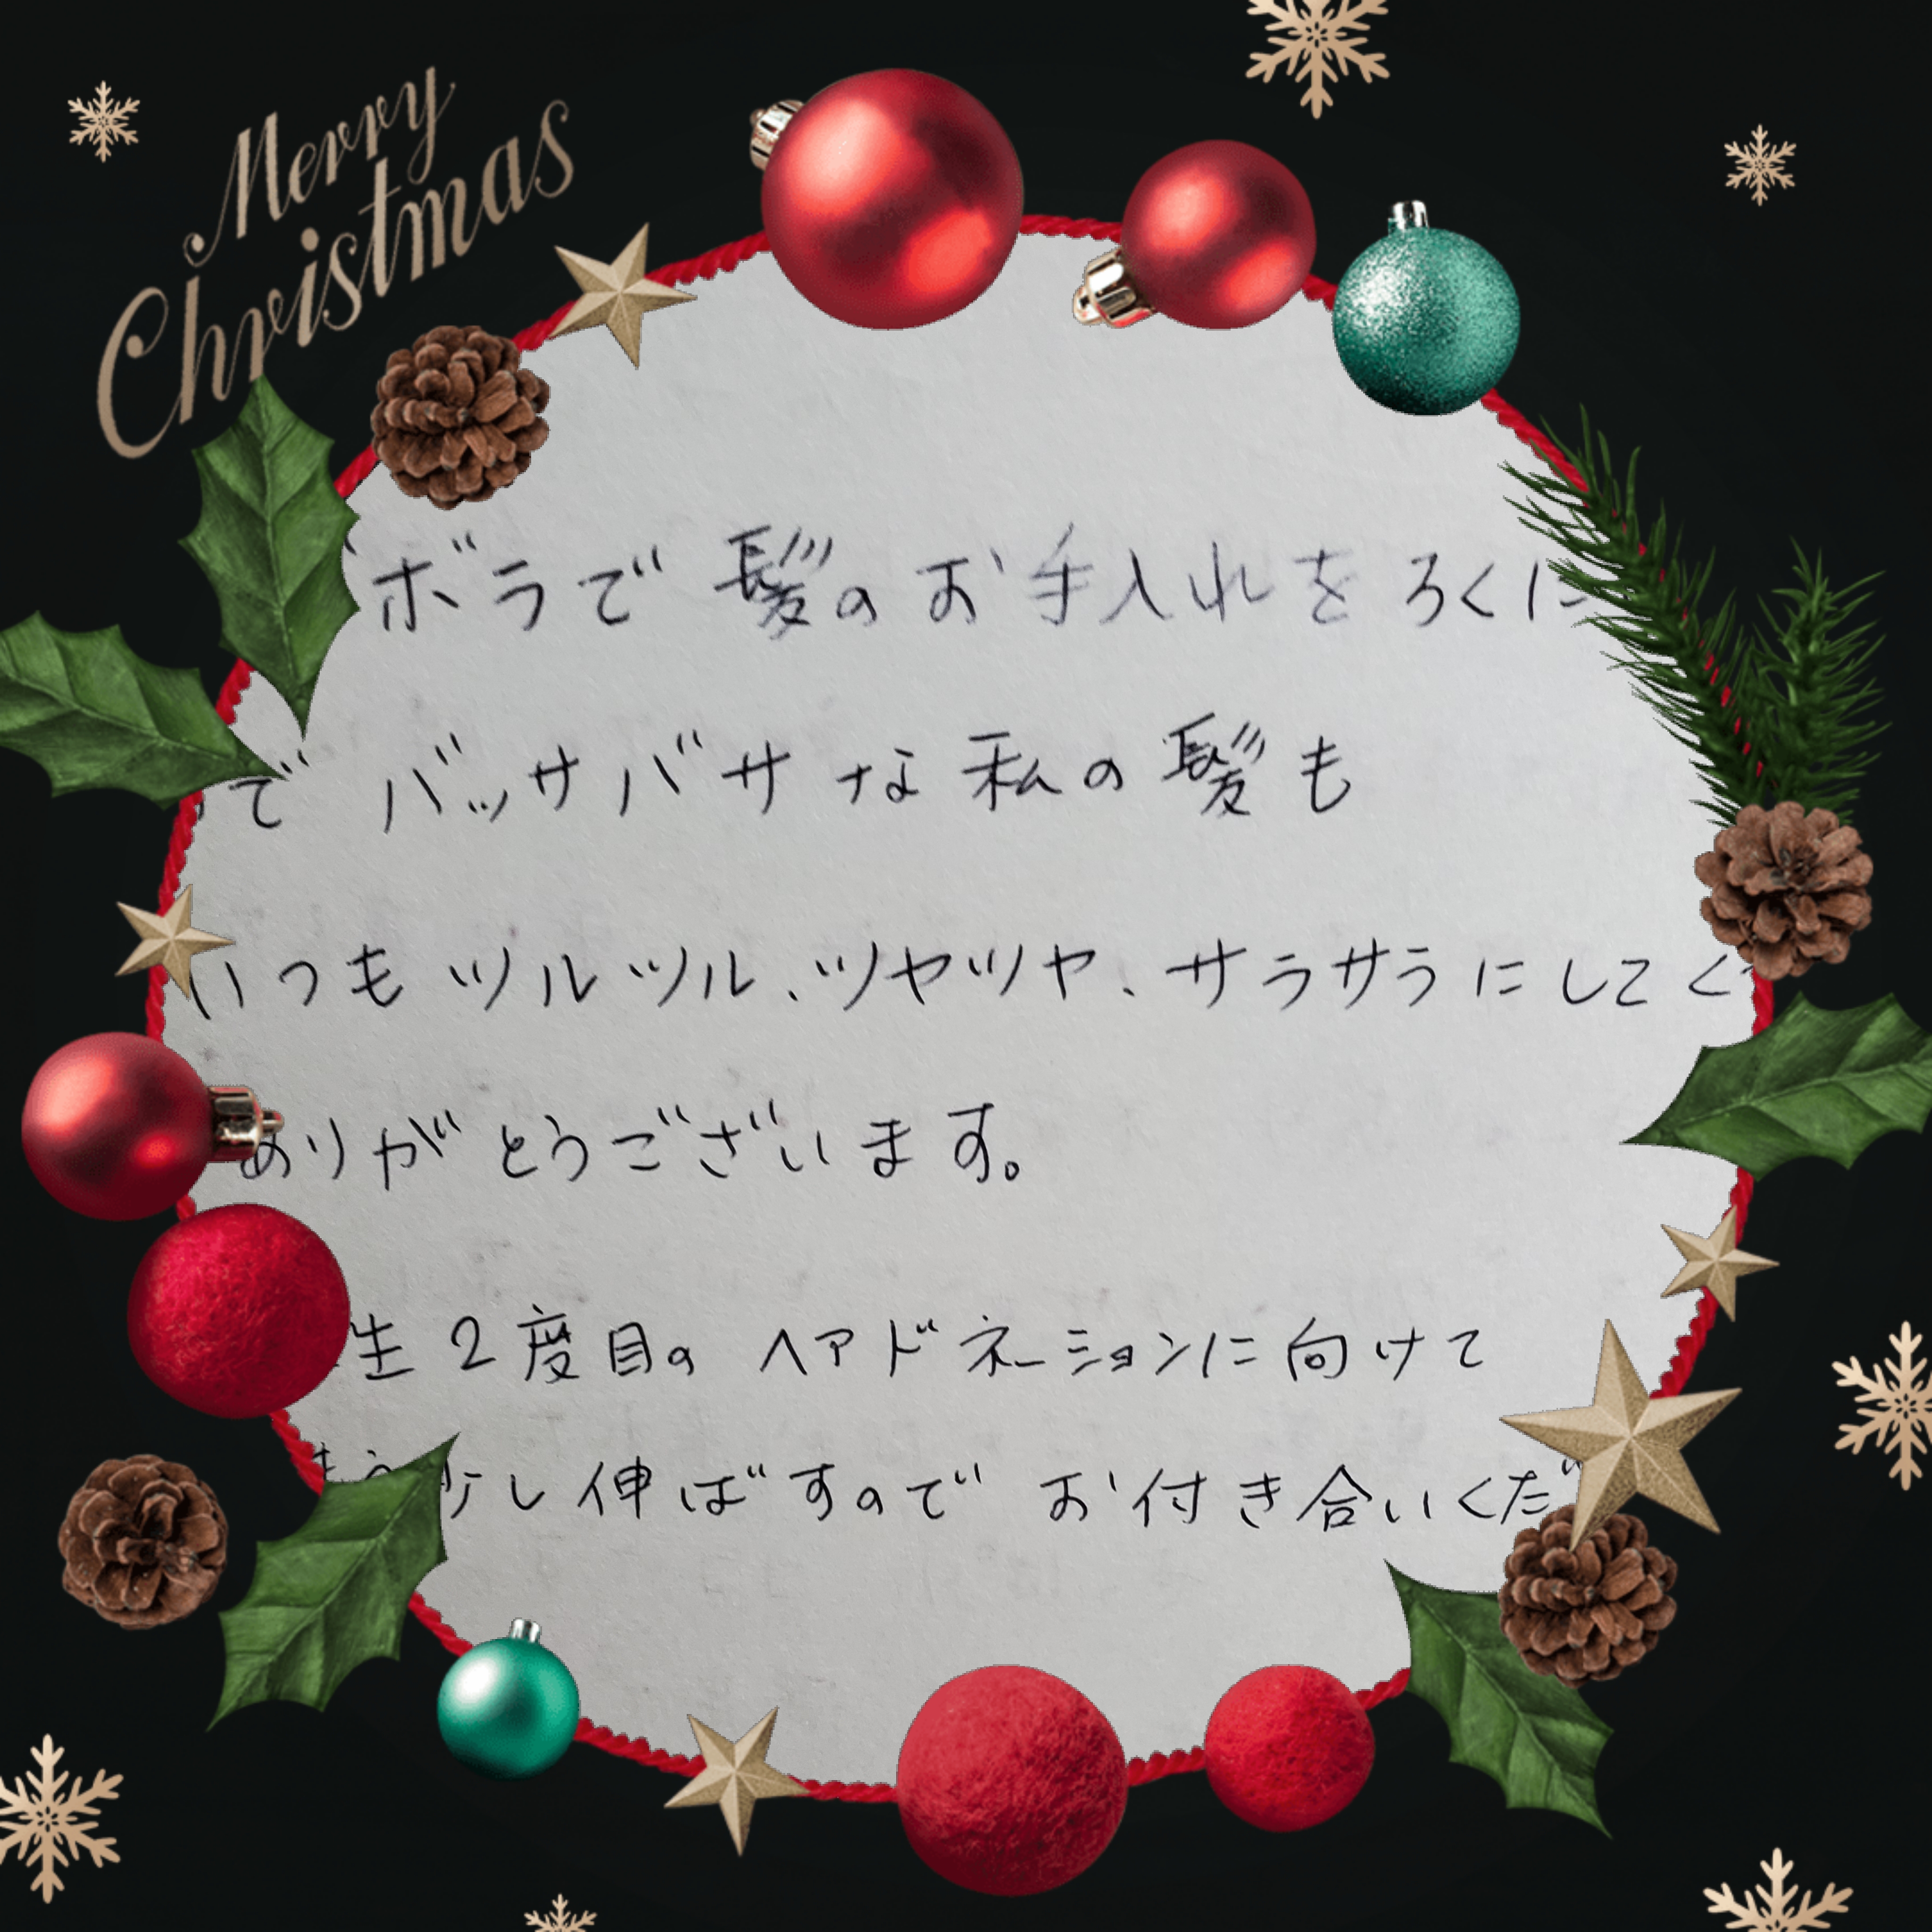 Merry
Christmas
ボラで髪のお手入れをろくに
でバッサバサな私の髪も
いつもツルツル、ツヤツヤ、サラサラにしてく
ありがとうございます。
生2度目のヘアドネーションに向けて
もう少し伸ばすのでお付き合いくだ